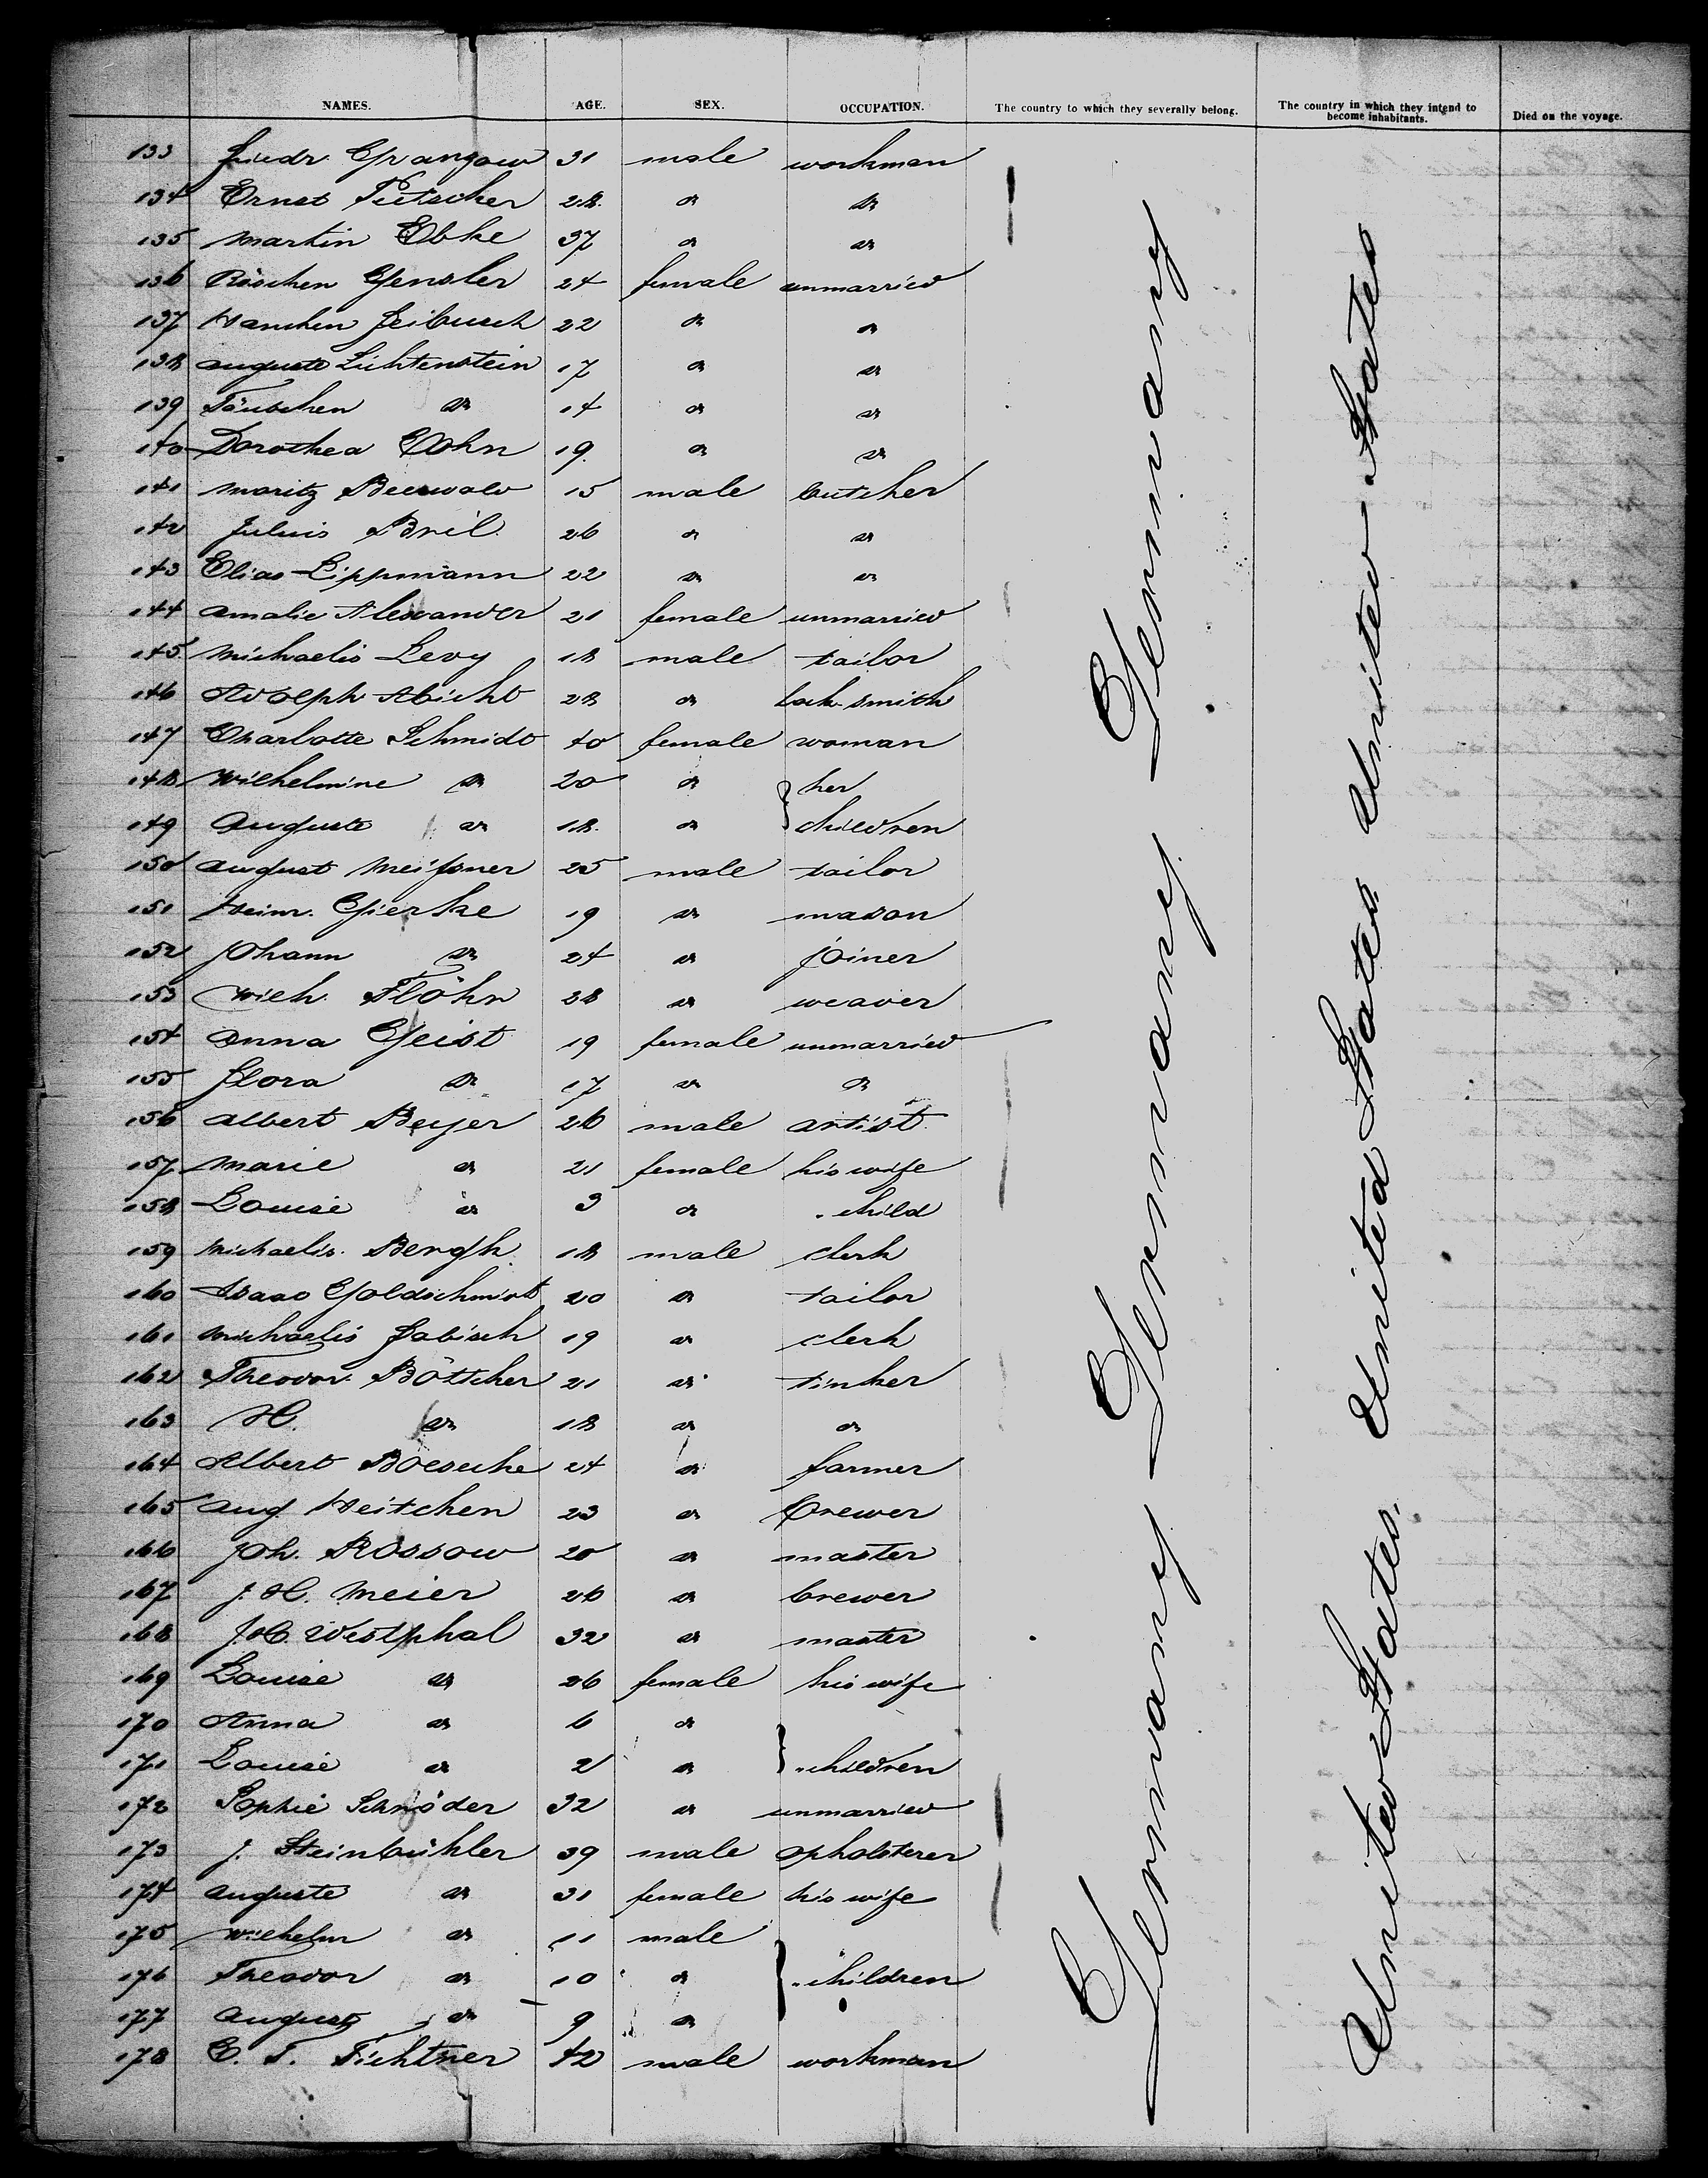 NAMES. AGE. SEX. OCCUPATION. The country to which they severally belong. The country in which they intend to become inhabitants. Died on the voyage.
133 Friedr. Grangow 31 male workman
134 Ernst Pütscher 28. " "
135 Martin Ebke 37 " "
136 Röschen Gensler 24 female unmarried
137 Hanchen Feibusch 22 " "
138 Auguste Lichtenstein 17 " "
139 Täubchen " 14 " "
140 Dorothea Cohn 19. " "
141 Moritz Beerwald 15 male butcher
142 Julius Bril 26 " "
143 Elias Lippmann 22 " "
144 Amalie Alexander 21 female unmarried
145 Michaelis Levy 18 male tailor
146 Adolph Abicht 28 " lock smith
147 Charlotte Schmidt 40 female woman
148 Wilhelmine " 20 " her
149 Auguste " 18. " children
150 August Meißner 25 male tailor
151 Heinr. Gierke 19 " mason
152 Johann " 24 " joiner
153 Wilh. Flöhr 28 " weaver
154 Anna Geist 19 female unmarried
155 Flora " 17 " "
156 Albert Beyer 26 male artist.
157 Marie " 21 female his wife
158 Louise " 3 " " child
159 Michaelis Bergh. 18 male clerk
160 Isaac Goldschmidt 20 " tailor
161 Michaelis Jabisch 19 " clerk
162 Theodor Böttcher 21 " tinker
163 H. " 18 " "
164 Albert Boesche 24 " farmer
165 Aug. Heitchen 23 " brewer
166 Joh. Rossow 20 " master
167 J. H. Meier 26 " brewer
168 J. C. Westphal 32 " master
169 Louise " 26 female his wife
170 Anna " 6 "
171 Louise " 2 " " children
172 Sophie Schröder 32 " unmarried
173 J. Steinbühler 39 male opholsterer
174 Auguste " 31 female his wife
175 Wilhelm " 11 male
176 Theodor " 10 " " children
177 August " 9 "
178 C. F. Fichtner 42 male workman
Germany Germany Germany
United States. United States United States